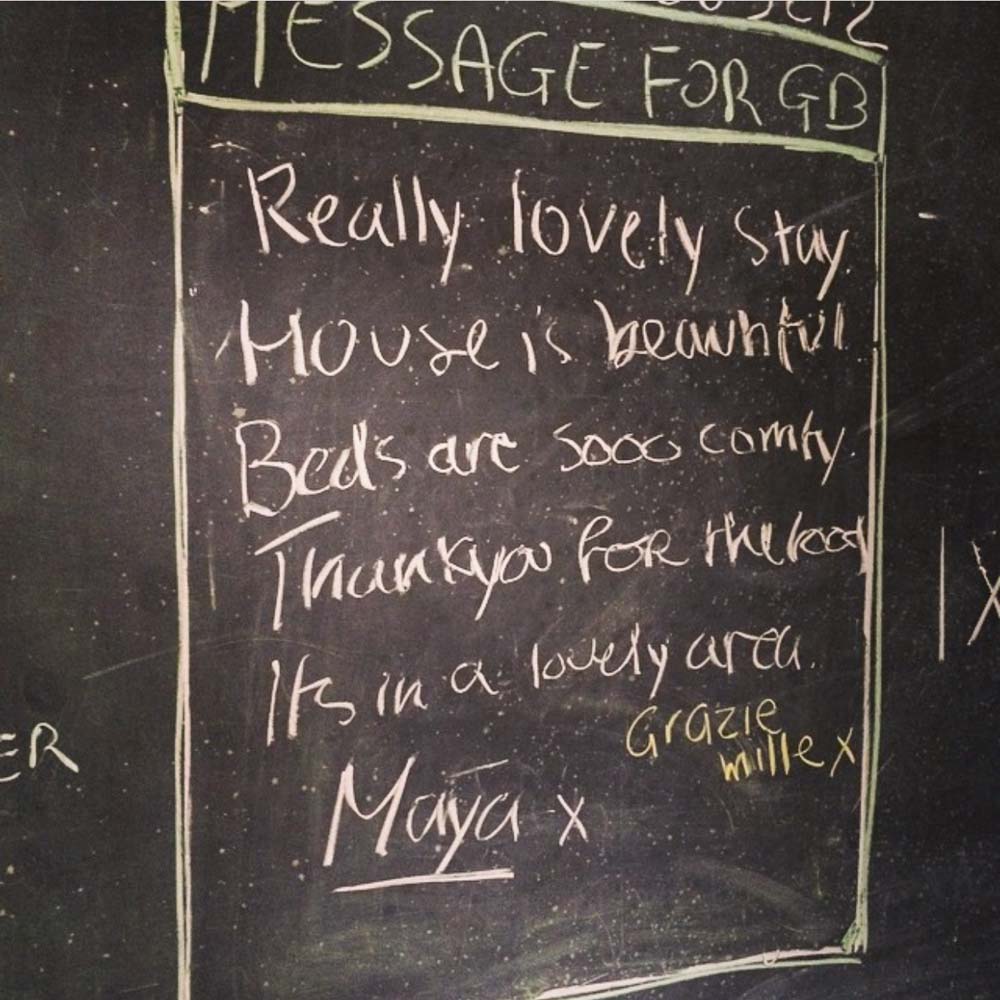 MESSAGE FOR GB
Really lovely stay.
House is beautiful
Beds are sooo comfy.
Thankyou for the food
Its in a lovely area.
Grazie
mille x
Maya x
ER
1 X